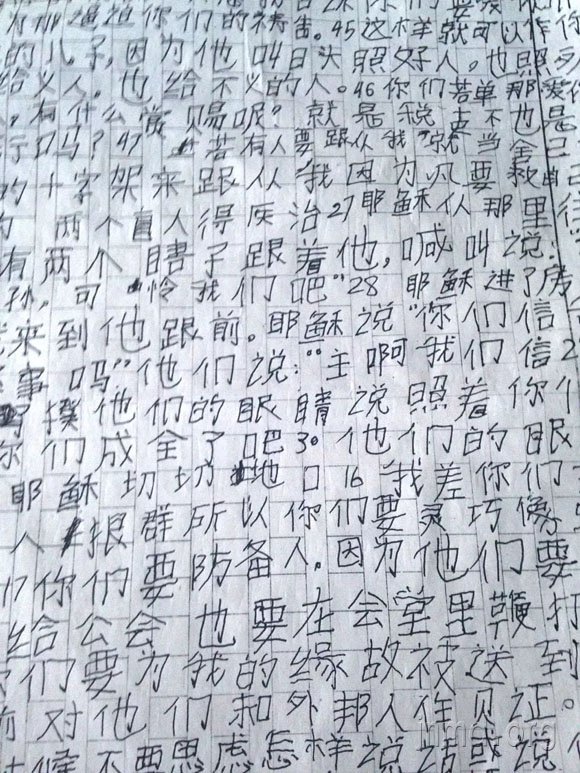 你们的祷告。45这样就可以作
的儿子,因为他叫日头照好人。也照
给义人。也给不义的人。46你们若单那
。有什么赏赐呢?就是税吏不也是
行吗?47 若有人要跟从我"就当舍己
的十字架来跟从 我因为凡要救
两个盲人得医治27耶稣从那里
有两个瞎子跟着他,喊叫说:
孙,可怜我们吧"28 耶稣进了房
来到他跟前。耶稣说"你们信
事吗"他们说:"主啊我们信2
摸他们的眼睛说照着你们
你们成全了吧30他们的眼
耶稣切切地口16 我差你们
人 狼群所以你们要灵巧像
17你们要防备人。因为他们要
给公会也要在会堂里鞭打
们要为我的缘故被送到
对他们和外邦人作见证。
候不要思虑怎样说话或说
hmc.org